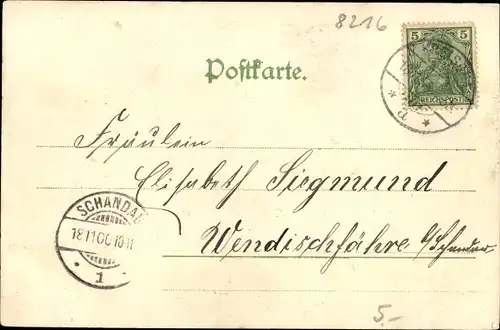 8216
5 5
REICHSPOST
Postkarte.
Fräulein
Elisabeth Siegmund
SCHANDAU
18 11 00 10-11
Wendischfähre b/Schandau
* 1
5.-